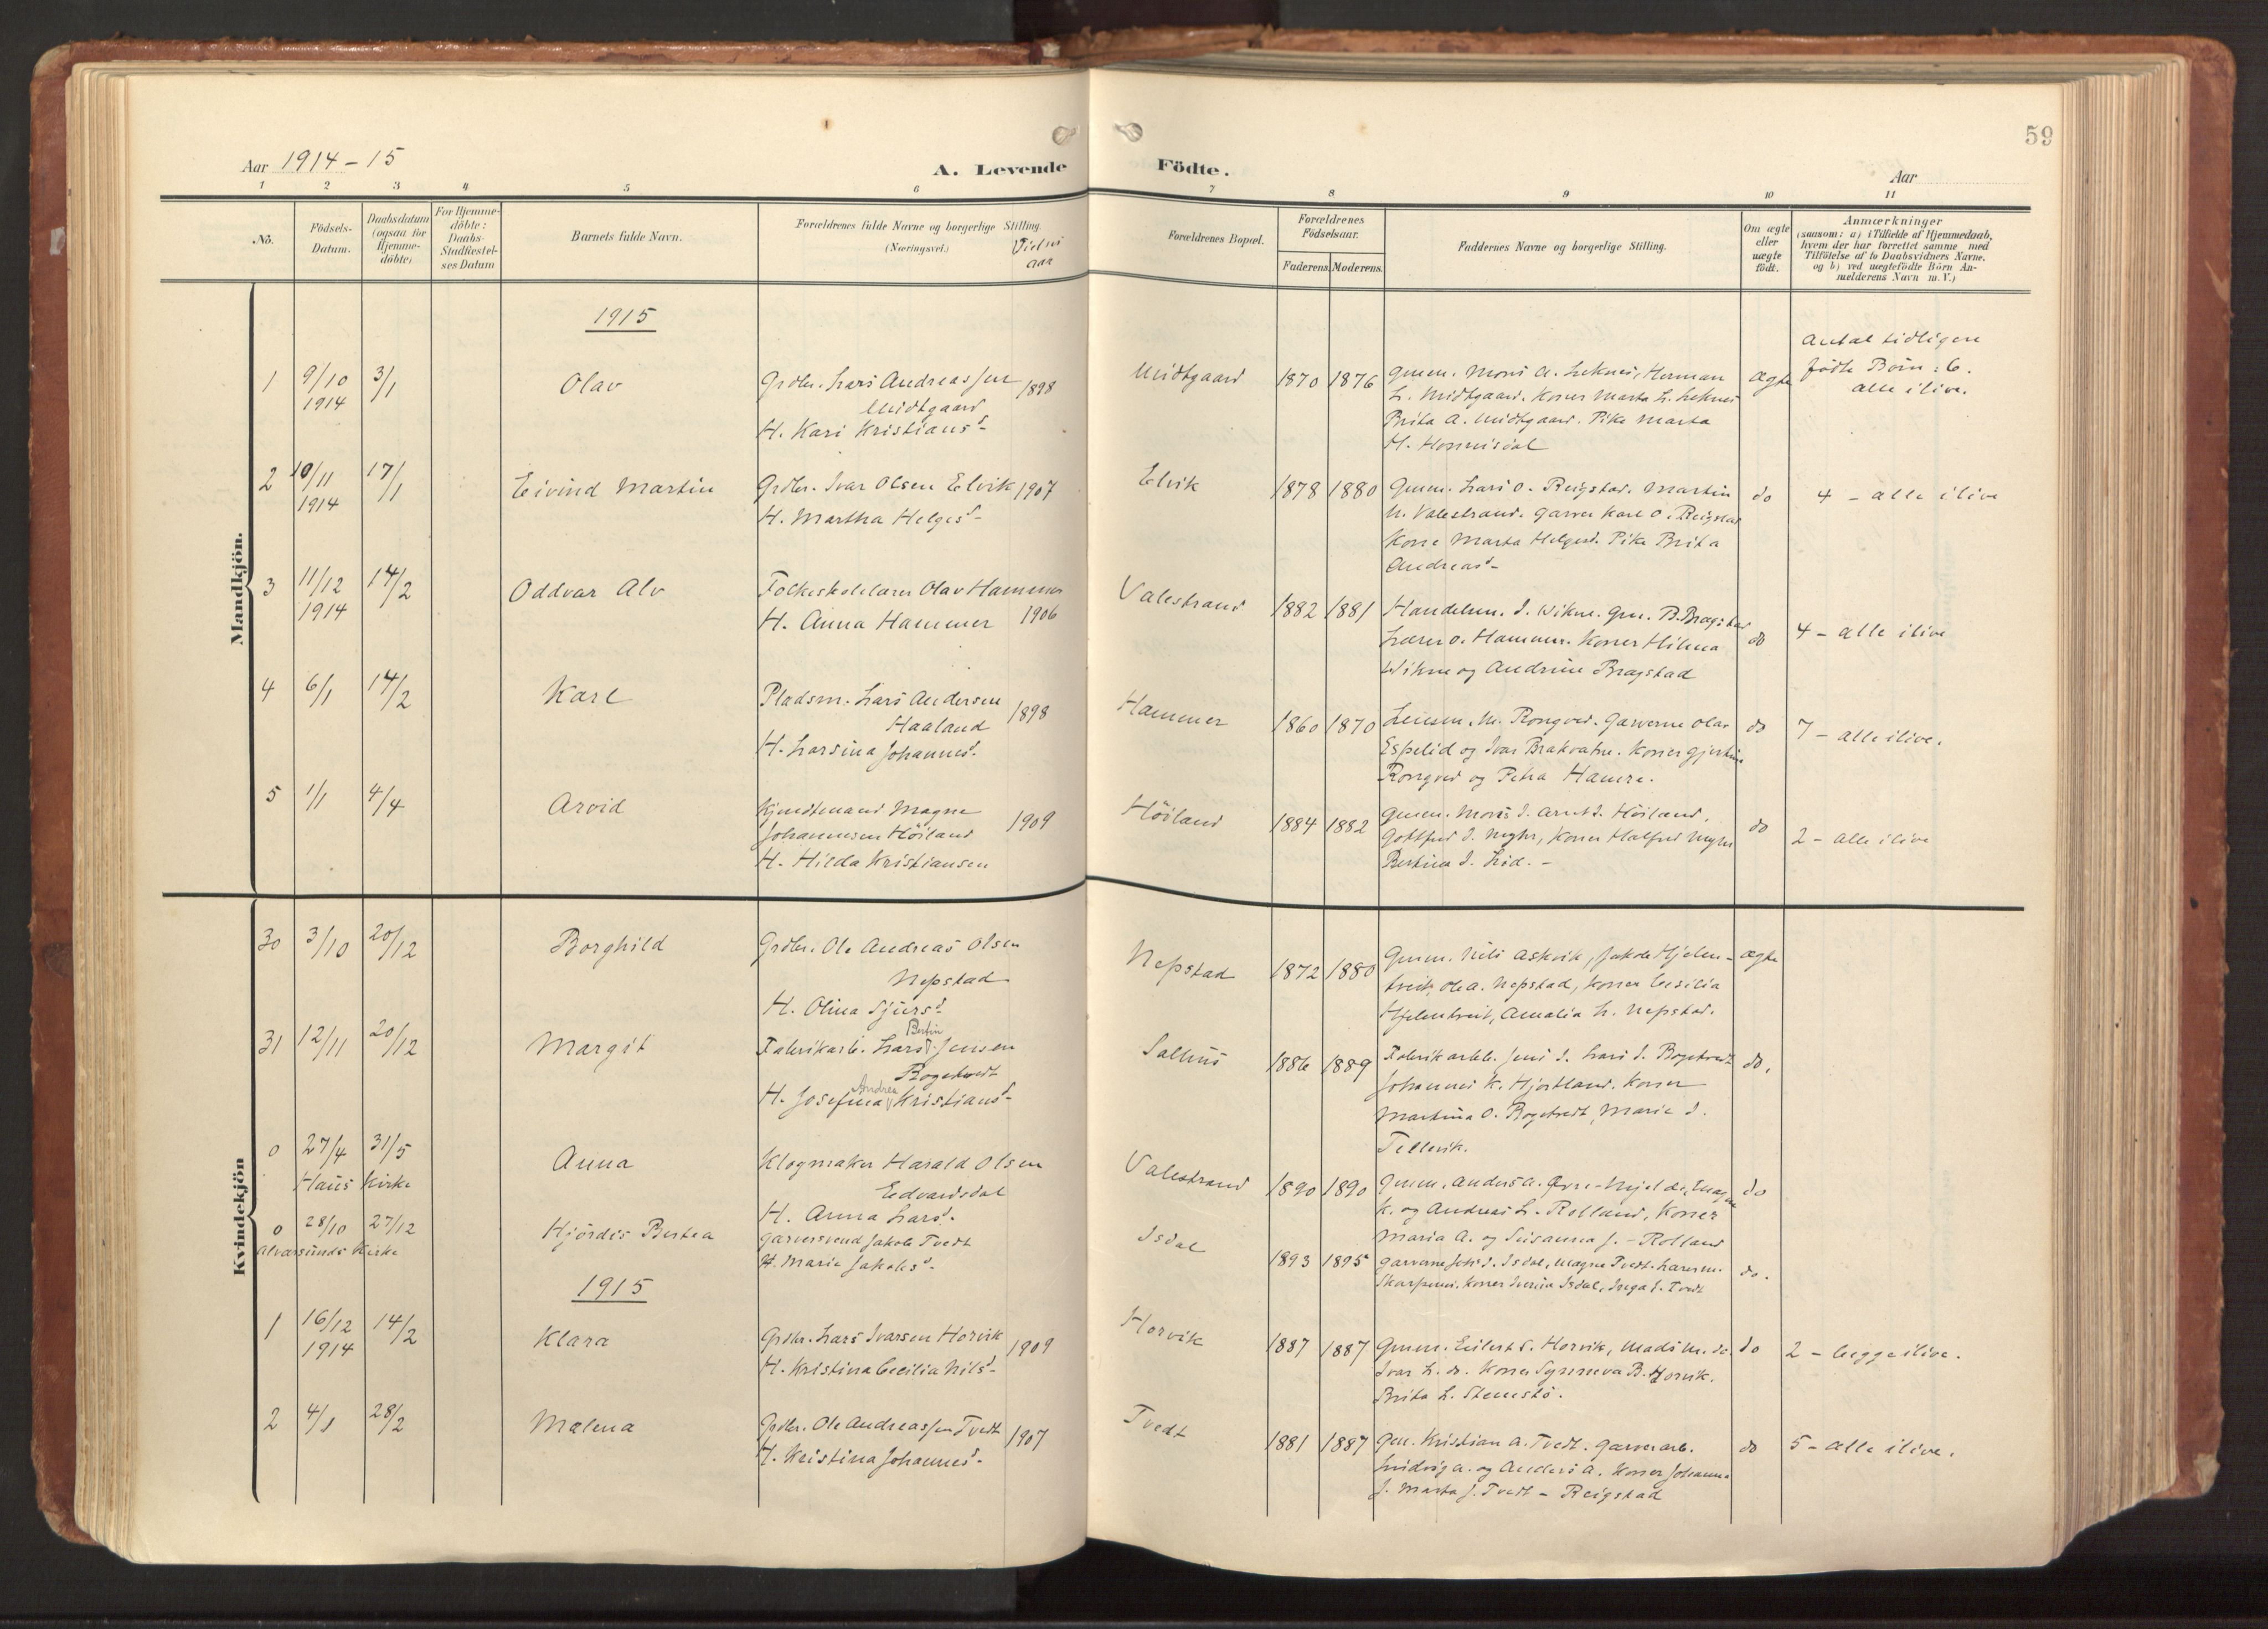 59
Aar 1914-15
A. Levende
Födte.
Aar
1 2 3 4 5 6 7 8 9 10 11
No.
Födsels-
Datum.
Daabsdatum
(ogsaa for
Hjemme-
döbte)
For Hjemme-
döbte:
Daabs-
Stadfæstel-
ses Datum
Barnets fulde Navn.
Forældrenes fulde Navne og borgerlige Stilling.
(Næringsvei.)
Vielsi
aar
Forældrenes Bopæl.
Forældrenes
Födselsaar.
Faderens. Moderens.
Faddernes Navne og borgerlige Stilling.
Om ægte
eller
uægte
födt.
Anmærkninger
(saasom: a) i Tilfælde af Hjemmedaab,
hvem der har forrettet samme med
Tilföielse af to Daabsvidners Navne,
og b) ved uægtefödte Börn An-
melderens Navn m. V.)
Mandkjön.
1915
1
9/10
1914
3/1
Olav
Grdbr. Lars Andreassen
Midtgaard
H. Kari Kristiansd.
1898
Midtgaard
1870 1876
Gmem. Mons A. Leknes, Herman
L. Midtgaard. Koner Marta L. Leknes
Brita A. Midtgaard. Pike Marta
H.
Ægte
Antal tidligere
födte Börn: 6.
alle ilive.
2
10/11
1914
17/1
Eivind Martin
Grdbr. Ivar Olsen Elvik
H. Martha Helgesd.
1907
Elvik
1878 1880
Gmem. Lars O. Reigstad. Martin
N. Valestrand. Garver Karl O. Reigstad
Kone Marta Helgesd. Pike Brita
Andreasd.
do
4 - alle ilive
3
11/12
1914
14/2
Oddvar Alv
Folkeskolelærer Olav Hammer
H. Anna Hammer
1906
Valestrand
1882 1881
Handelsm. J. Wikne. Gm. B. Bragstad
Lærer O. Hammer. Koner Hilma
Wikne og Andrine Bragstad
do
4 - alle ilive
4
6/1
14/2
Karl
Pladsm. Lars Andersen
Haaland
H. Larsina Johannesd.
1898
Hammer
1860 1870
Lensm. M. Rongved. Garverne Olav
Espelid og Ivar Brakvatne. Koner Gjertine
Rongved og Petra Hamre.
do
7 - alle ilive.
5
1/1
4/4
Arvid
Magne
Johannesen Höiland
H. Hilda Kristiansen
1909
Höiland
1884 1882
Gmem. Mons J. Arnt J. Höiland,
Gottfred J. Myhr, Koner Halfrid Myhr
Bertina J. Lid.
do
2 - alle ilive
Kvindekjön
30
3/10
20/12
Borghild
Grdbr. Ole Andreas Olsen
Nepstad
H. Olina Sjursd.
Nepstad
1872 1880
Gmem. Nils Askvik, Jakob Hjelm-
tveit, Ole A. Nepstad, Koner Cesilia
Hjelmtveit, Amalia L. Nepstad.
ægte
31
12/11
20/12
Margit
Bertin
Fabrikarb. Lars Jensen
Rogetvedt
Andrea
H. Josefina Kristiansd.
Salhus
1886 1889
Fabrikarbb. Jens J. Lars J. Rogetvedt
Johannes K. Hjortland. Koner
Martina O. Rogetvedt, Marie J.
Tellevik.
do.
0
27/4
31/5
Haus Kirke
Anna
Klogmaker Harald Olsen
Edvardsdal
H. Anna Larsd.
Valestrand
1890 1890
Gmem. Anders A. Övre-Mjelde, Magne
K. og Andreas L. Rolland, Koner
Maria A. og Susanna J. - Rolland
do
0
28/10
27/12
Alversunds Kirke
Hjördis Bertea
Garversvend Jakob Tvedt
H. Marie Jakobsd.
Isdal
1893 1895
Garverne Johs J. Isdal, Magne Tvedt. Lærer M.
Koner Isdal, Inga J. Tvedt
do.
1915
1
16/12
1914
14/2
Klara
Grdbr. Lars Ivarsen Horvik
H. Kristina Cecilia Nilsd.
1909
Horvik
1887 1887
Gmem. Eilert S. Horvik, Mads M. do.
Ivar L. do. Koner Synneva B. Horvik.
Brita L. Stemstö.
do
2 - begge ilive.
2
4/1
28/2
Malena
Grdbr. Ole Andreassen Tvedt
H. Kristina Johannesd.
1907
Tvedt
1881 1887
Gm. Kristian A. Tvedt. Garverarb.
Ludvig A. og Anders A. Koner Johanna
J. Marta J. Tvedt - Reigstad
do
5 - alle ilive.